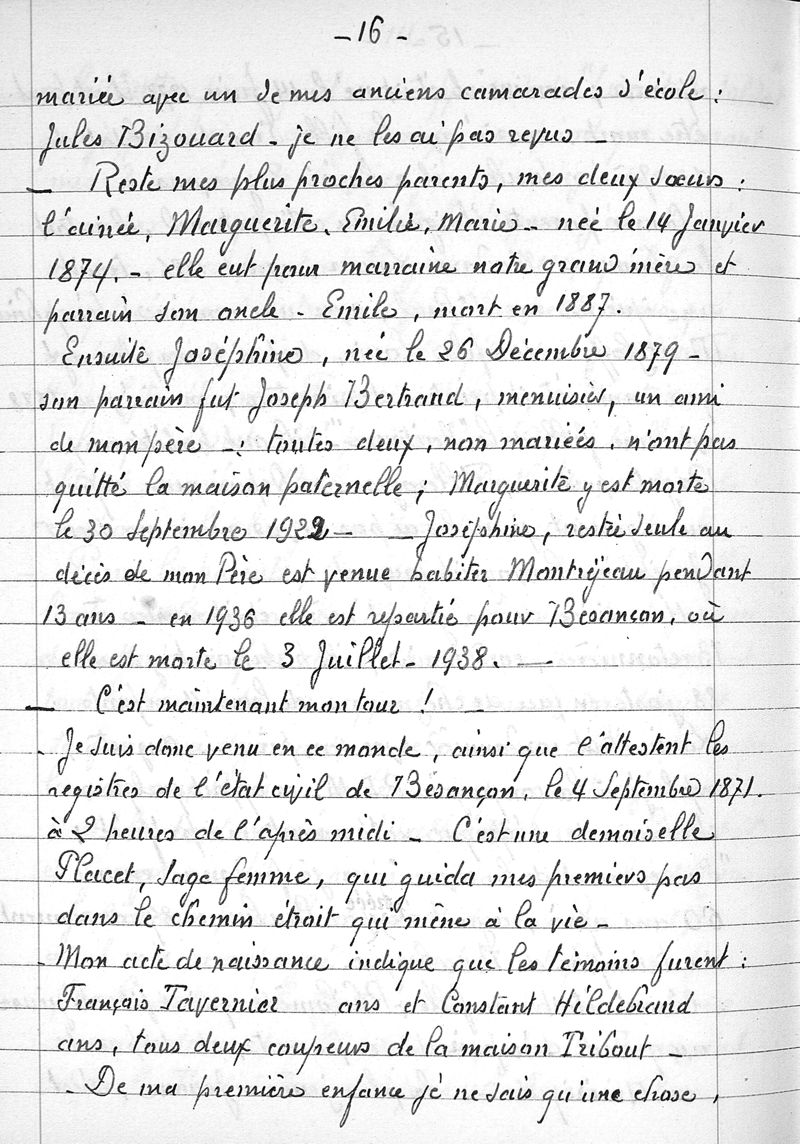 - 16 -
mariée avec un de mes anciens camarades d'école :
Jules Bizouard - je ne les ai pas revus -
- Reste mes plus proches parents, mes deux sœurs :
l'ainée, Marguerite, Emilie, Marie - née le 14 Janvier
1874. - elle eut pour marraine notre grand'mère et
parrain son oncle - Emile, mort en 1887.
Ensuite Joséphine, née le 26 Décembre 1879 -
son parrain fut Joseph Bertrand, menuisier, un ami
de mon père - : toutes deux, non mariées, n'ont pas
quitté la maison paternelle ; Marguerite y est morte
le 30 Septembre 1922 - - Joséphine, restée seule au
décès de mon Père est venue habiter Montréjeau pendant
13 ans - en 1936 elle est repartie pour Besançon, où
elle est morte le 3 Juillet - 1938. -
- C'est maintenant mon tour ! -
- Je suis donc venu en ce monde, ainsi que l'attestent les
registres de l'état civil de Besançon, le 4 Septembre 1871.
à 2 heures de l'après midi - C'est une demoiselle
Placet, sage femme, qui guida mes premiers pas
dans le chemin étroit qui mène à la vie -
- Mon acte de naissance indique que les témoins furent :
François Tavernier ans et Constant Hildebrand
ans, tous deux coupeurs de la maison Tribout -
- De ma première enfance je ne sais qu'une chose,